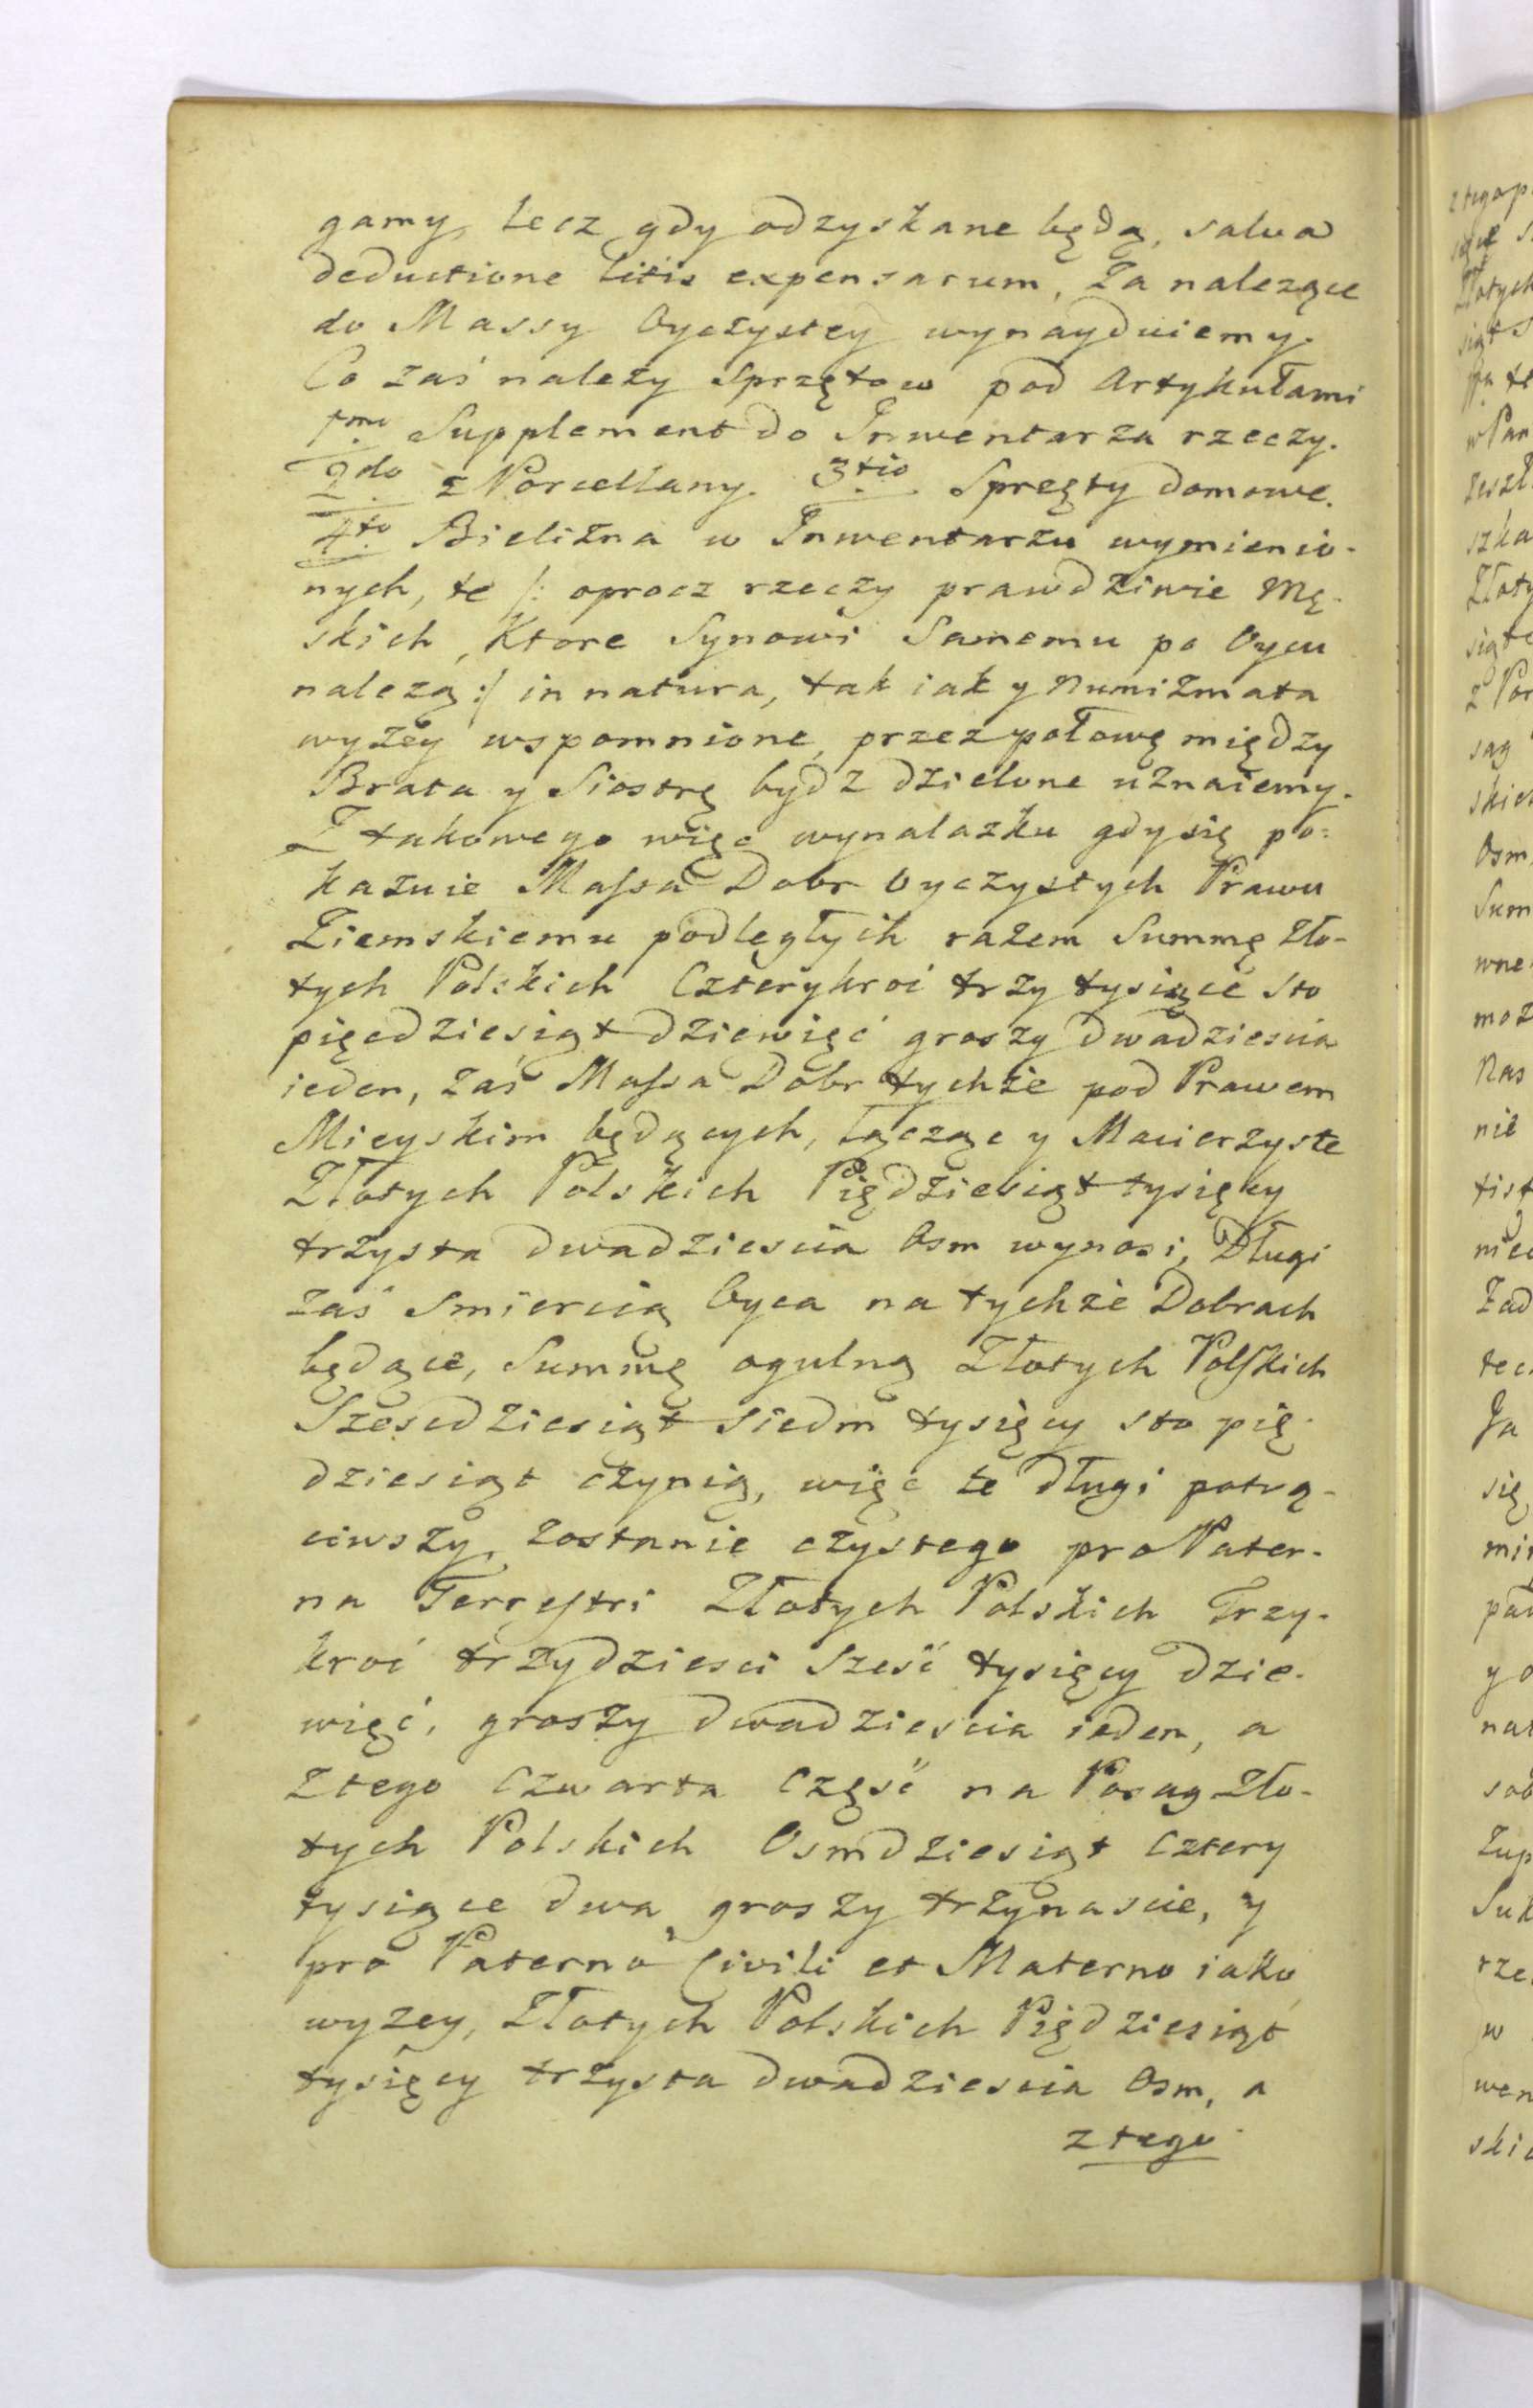 gamy, lecz gdy odzyskane będą, salva
deductione litis expensarum, Za nalezące
do Massy Oyczystey wynayduiemy.
Co zaś nalezy Sprzętow pod Artykułami
1mo Supplement do Inwentarza rzeczy.
2do z Porcellany. 3tio Spręzty domowe.
4to Bielizna w Inwentarzu wymienio-
nych, te /: oprocz rzeczy prawdziwie Mę-
skich, Ktore Synowi Samemu po Oycu
nalezą :/ in natura, tak iak y Numizmata
wyzey wspomnione, przez połowę między
Brata y Siostrę bydz dzielone uznaiemy.
Z takowego więc wynalazku gdy się po=
kazuie Massa Dobr Oyczystych Prawu
Ziemskiemu podległych razem Summę Zło-
tych Polskich Czterykroć trzy tysiące Sto
pięcdziesiąt dziewięć groszy dwadziescia
ieden, zaś Massa Dobr tychze pod Prawem
Mieyskim będących, łącząc y Macierzyste
Złotych Polskich Piędziesiąt tysięcy
trzysta dwadziescia Osm wynosi, Długi
zaś Smiercią Oyca na tychze Dobrach
będące, Summę ogulną Złotych Polskich
Szescdziesiąt siedm tysięcy sto pię-
dziesiąt czynią, więc te długi potrą-
ciwszy, zostanie czystego pro Pater-
na Terrestri Złotych Polskich Trzy-
kroć trzydziesci Sześć tysięcy dzie-
więć, groszy dwadziescia ieden, a
z tego Czwarta Część na Posag Zło-
tych Polskich Osmdziesiąt Cztery
tysiące dwa, groszy trzynascie, y
pro Paterno Civili et Materno iako
wyzey, Złotych Polskich Pięдziesiąt
tysięcy trzysta dwadziescia Osm, a
z tego